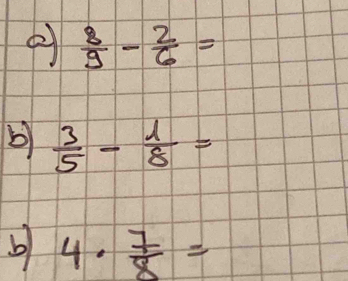 a) 8/9 - 2/6 =
b) 3/5 - 1/8 =
b) 4 · 7/8 =